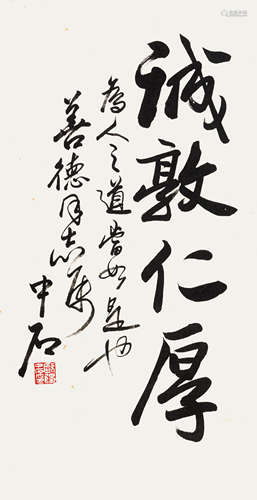 诚敦仁厚
为人之道当如是也
善德同志属
中石